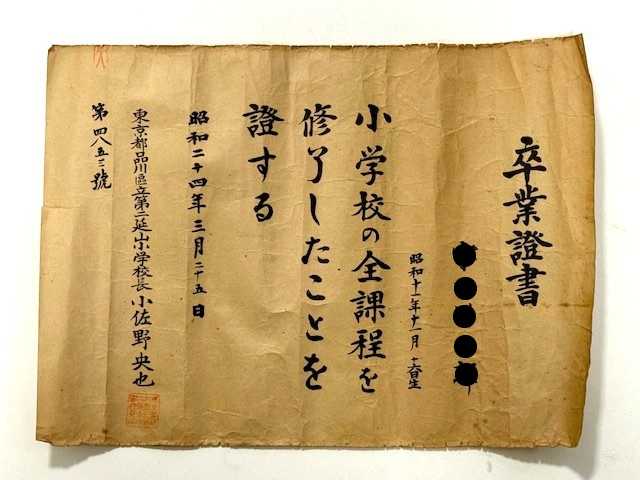 卒業證書
昭和十一年十一月十六日生
小学校の全課程を
修了したことを
證する
昭和二十四年三月二十五日
東京都品川區立第二延山小学校長 小佐野央也
第四八五三號